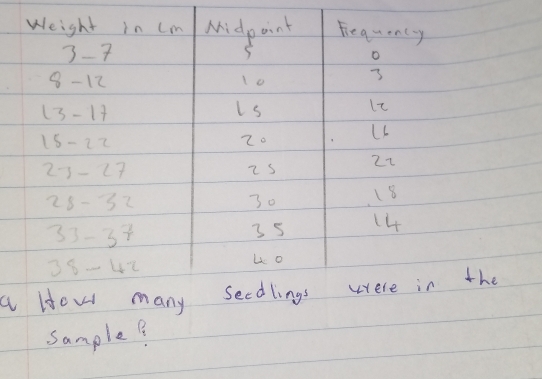 Weight in cm Midpoint Frequency
3-7 5 0
8-12 10 3
13-17 15 12
18-22 20 16
23-27 25 22
28-32 30 18
33-37 35 14
38-42 40
a How many seedlings were in the
sample?